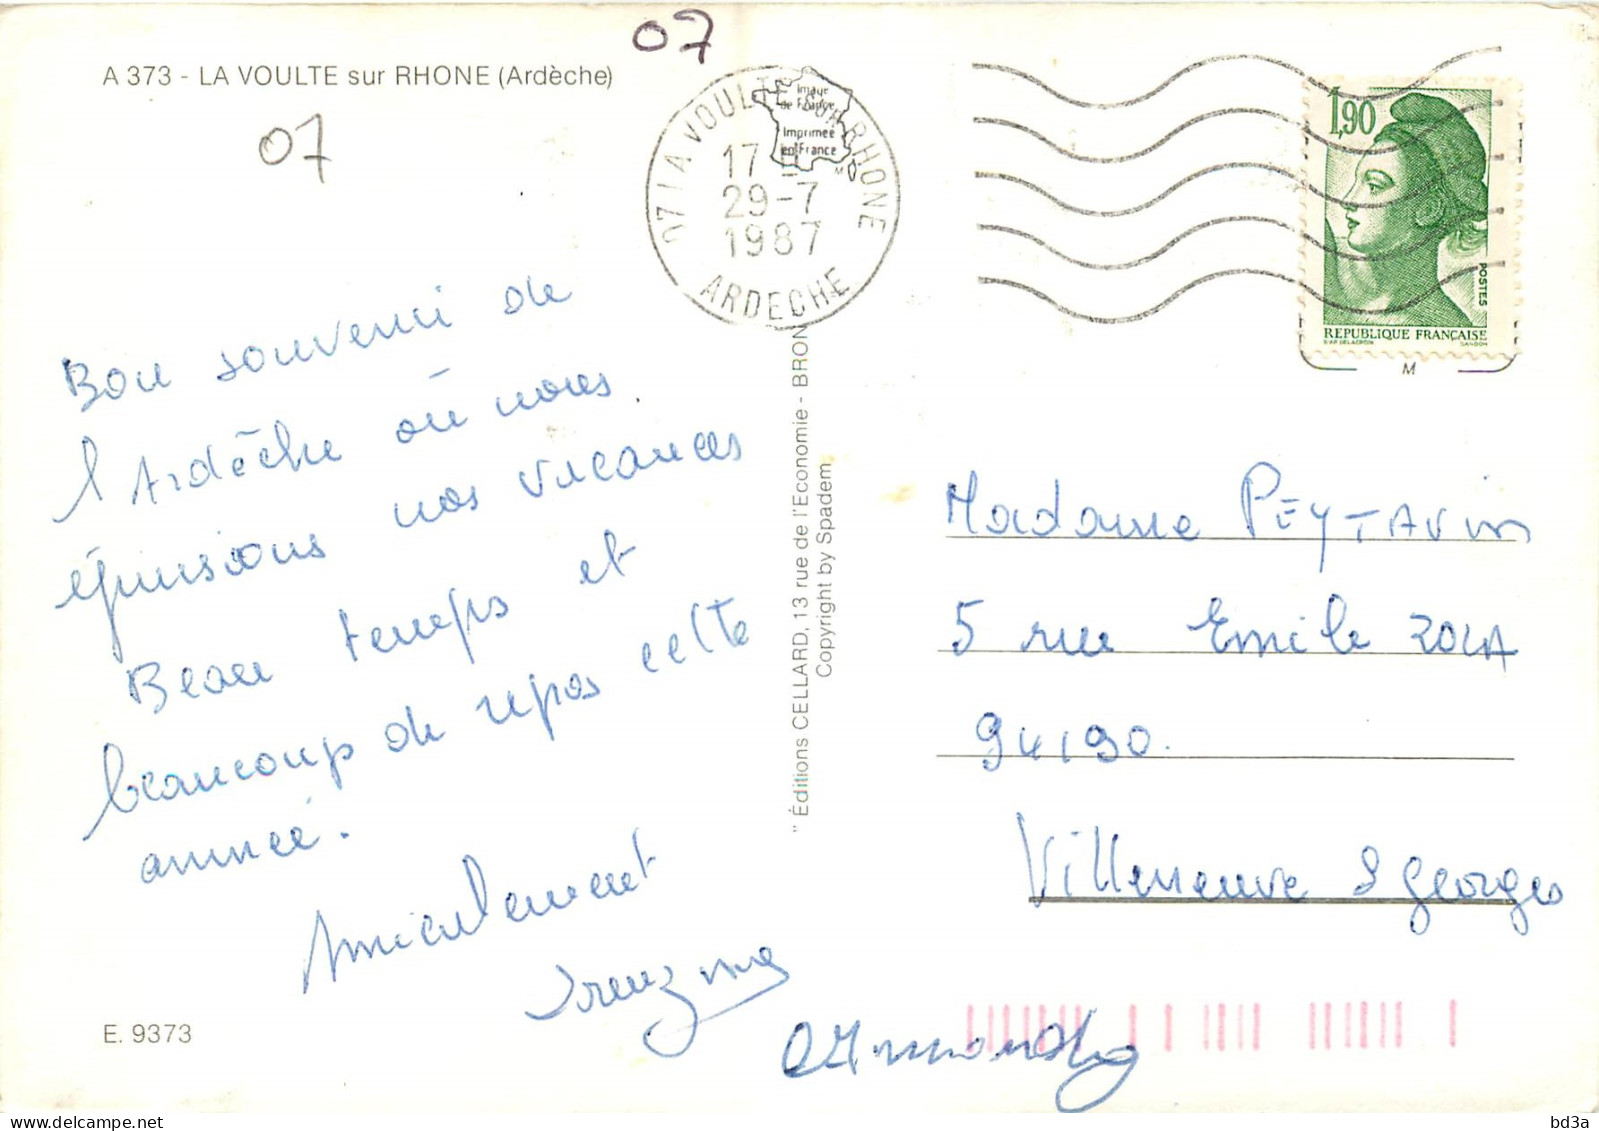 07
A 373 - LA VOULTE sur RHONE (Ardèche)
07
07 LA VOULTE SUR RHONE
17 H
29-7
1987
ARDECHE
Image
de France
Imprimée
en France
M
1,90
POSTES
REPUBLIQUE FRANÇAISE
D'AP. DELACROIX GANDON
M
Bon souvenir de
l'Ardèche où nous
épuisons nos vacances
Beau temps et
beaucoup de repos cette
année.
Amicalement
Éditions CELLARD, 13 rue de l'Economie - BRON
Copyright by Spadem
Madame PEYTAVIN
5 rue Emile ZOLA
94190.
Villeneuve S Georges
E. 9373
bd3a